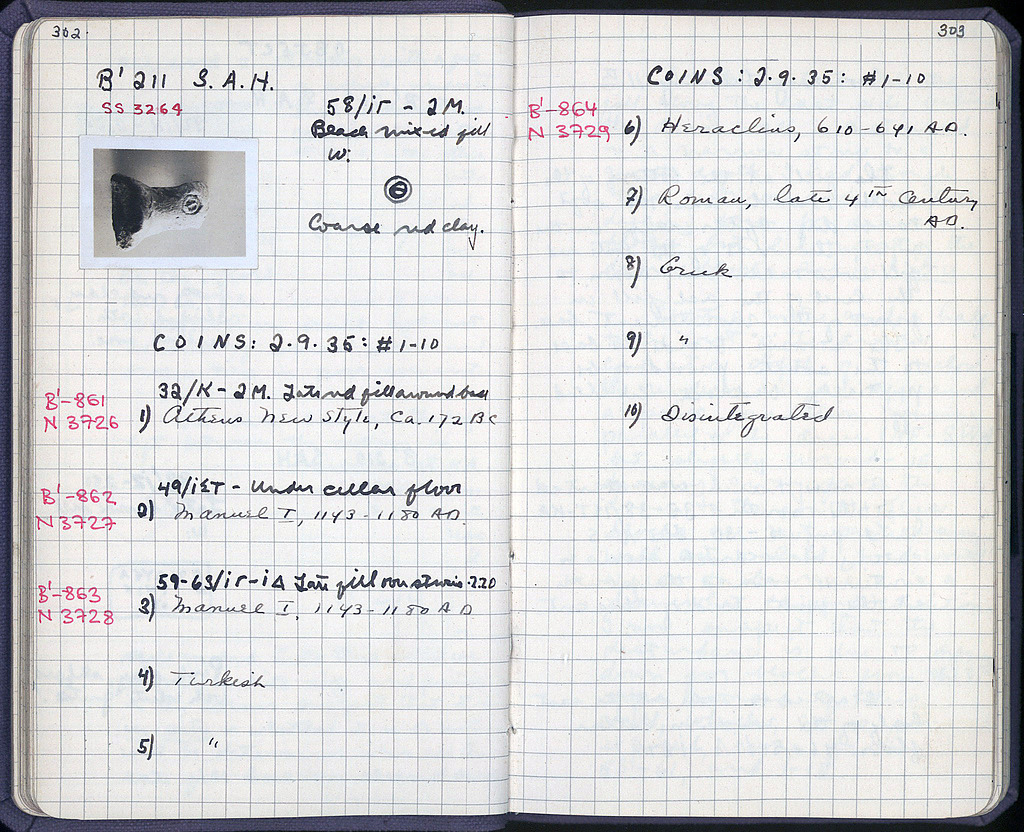 302.
B' 211 S.A.H.
SS 3264
58/ΙΓ - 2 M.
Black mixed fill
W:
Coarse red clay.
COINS: 2.9.35: #1-10
32/Κ - 2 M. Late red fill around base
B'-861
N 3726
1) Athens New Style, Ca. 172 BC
49/ΙΣΤ - Under cellar floor
B'-862
N 3727
2) Manuel I, 1143-1180 AD.
59-63/ΙΓ-ΙΔ Late fill 2.20
B'-863
N 3728
3) Manuel I, 1143-1180 AD
4) Turkish
5) "
303
COINS: 2.9.35: #1-10
B'-864
N 3729
6) Heraclius, 610-641 AD.
7) Roman, late 4TH Century
AD.
8) Greek
9) "
10) Disintegrated